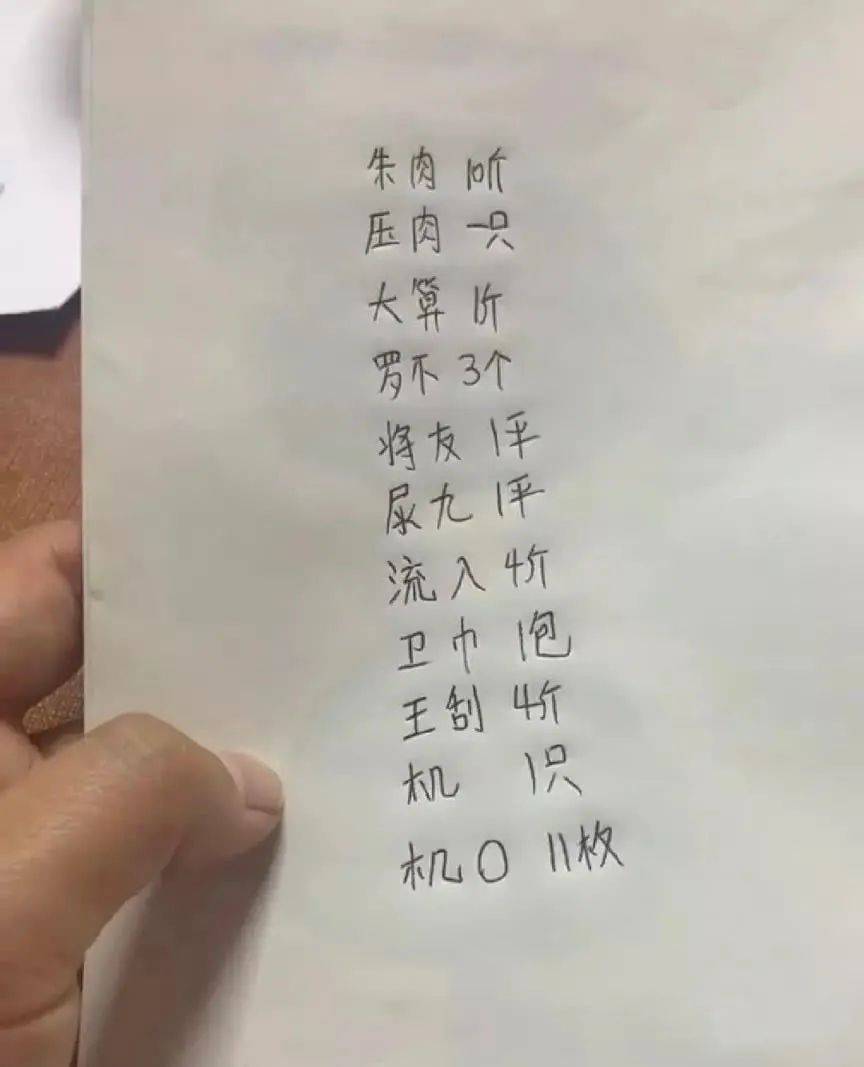 朱肉 10斤
压肉 一只
大算 1斤
罗不 3个
将友 1平
尿九 1平
流入 4斤
卫巾 1包
王刮 4斤
机 1只
机0 11枚